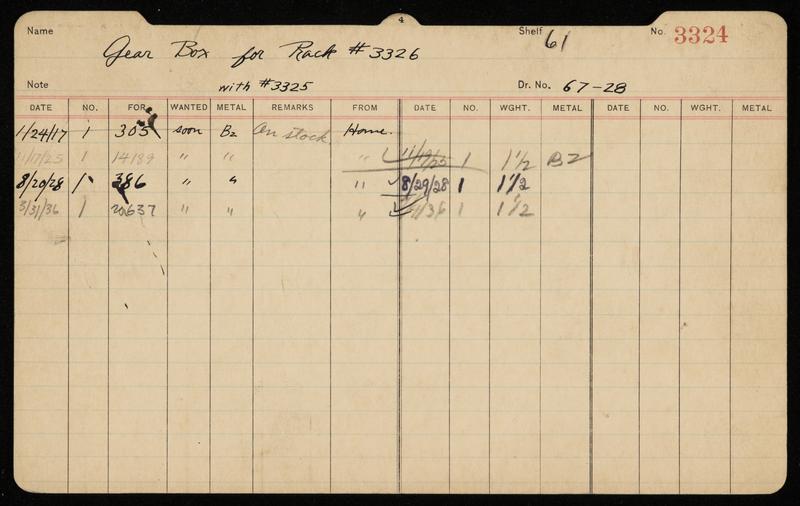 4
Name Shelf 61 No. 3324
Gear Box for Rack #3326
Note with #3325 Dr. No. 67-28
DATE NO. FOR WANTED METAL REMARKS FROM DATE NO. WGHT. METAL DATE NO. WGHT. METAL
1/24/17 1 305 soon Bz On stock. Home.
11/17/25 1 14189 " " " 11/19/25 1 1 1/2 BZ
8/20/28 1 386 " " " 8/29/28 1 1 1/2
3/31/36 1 20637 " " " /36 1 1 1/2